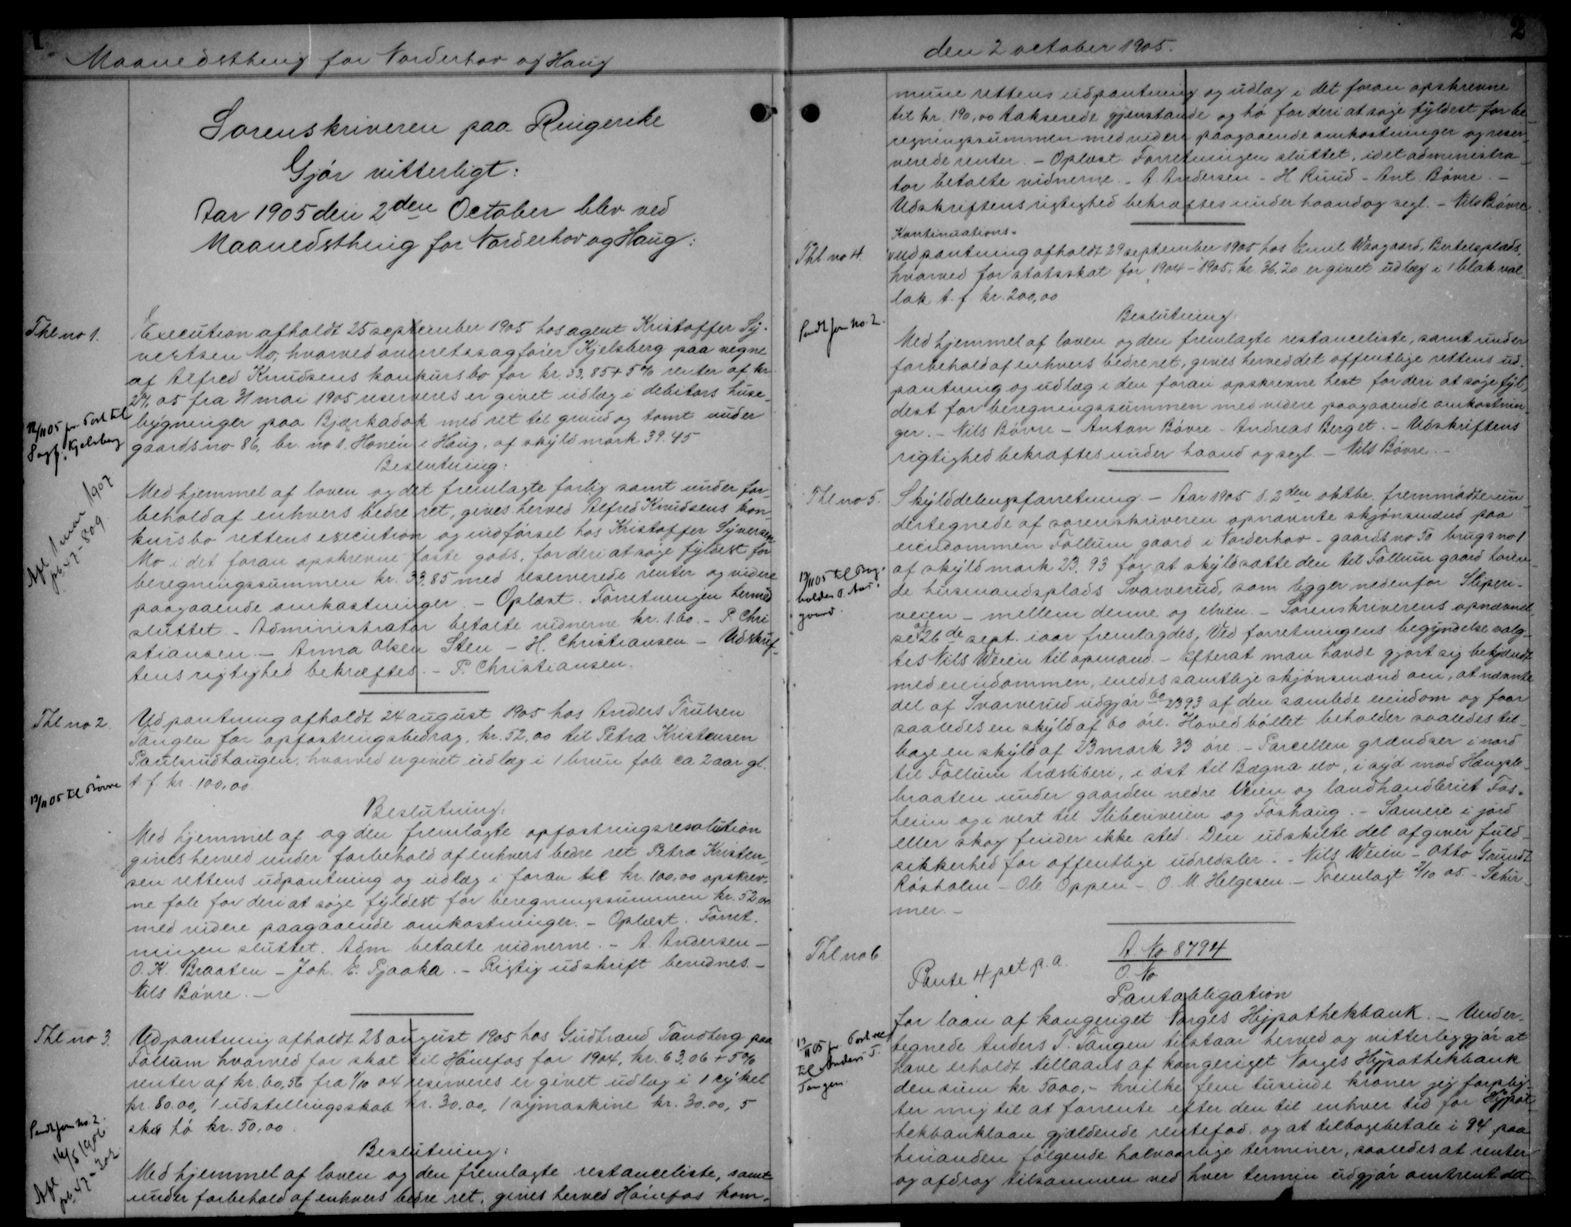 1
Maanedsthing for Norderhov og Haug
Sorenskriveren paa Ringerike
Gjör vitterligt:
Aar 1905 den 2den October blev ved
Maanedsthing for Norderhov og Haug:
Thl no 1.
Execution afholdt 25 september 1905 hos agent Kristoffer Sy-
vertsen Mo, hvorved overretssagförer Kjelsberg paa vegne
af Alfred Knudsens konkursbo for kr. 33.85 + 5% renter af kr
27,05 fra 4 mai 1905 reserveres er givet udlæg i debitors huse-
bygninger paa Bjerkadok med ret til grund og tomt under
gaardsno 86, br. no 1. Honen i Haug, af skyld mark 39.45
Beslutning:
Med hjemmel af loven og det fremlagte forlig samt under for-
behold af enhvers bedre ret, gives herved Alfred Knudsens kon-
kursbo rettens execution og indförsel hos Kristoffer Syversen
Mo i det foran opskrevne faste gods, for deri at söge fyldest for
beregningssummen kr. 33,85 med reserverede renter og videre
paagaaende omkostninger. - Oplæst. Forretningen hermed
sluttet. - Administrator betalte vidnerne kr. 1.60. - P. Chri
stiansen. - Anna Olsen Sten - H. Christiansen - Udskrif-
tens rigtighed bekræftes. - P. Christiansen.
11/11 05 pr. Port til
Sagf. Kjelsberg
Afl. 1907
pb. 17-809
Thl no 2.
Udpantning afholdt 24 august 1905 hos Anders Trulsen
Tangen for opfostringsbidrag, kr. 52,00 til Petra Kristensen
Paulsrudhaugen, hvorved er givet udlæg i 1 brun fole ca 2 aar gl.
t. f. kr. 100,00.
13/11 05 til Bövre
Beslutning:
Med hjemmel af og den fremlagte opfostringsresolution
gives herved under forbehold af enhvers bedre ret Petra Kristen-
sen rettens udpantning og udlæg i foran til kr. 100,00 opskrev-
ne fole for deri at söge fyldest for beregningssummen kr. 52,00
med videre paagaaende omkostninger. - Oplæst. Forret-
ningen sluttet. Adm. betalte vidnerne. - A. Andersen -
O. K. Braaten - Joh. E. Tjaaka. - Rigtig udskrift bevidnes. -
Nils Bövre. -
Thl no 3.
Udpantning afholdt 28 august 1905 hos Gudbrand Tandberg paa
Follum hvorved for skat til Hönefos for 1904, kr. 63,06 + 5%
renter af kr. 60,56 fra 1/10 04 reserveres er givet udlæg i 1 cykel
kr. 80.00, 1 udstillingsskab kr. 30.00, 1 symaskine kr. 30.00, 5
skaa hö kr. 50,00.
Sendt fra no 2.
Afl 14/5 1906
pb. 17-202
Beslutning:
Med hjemmel af loven og den fremlagte restanceliste, samt
under forbehold af enhvers bedre ret, gives herved Hönefos kom-
2
den 2 october 1905.
mune rettens udpantning og udlæg i det foran opskrevne
til kr. 190,00 takserede gjenstande og hö for deri at söge fyldest for be-
regningssummen med videre paagaaende omkostninger og reser-
verede renter. - Oplæst. Forretningen sluttet, idet administra-
tor betalte vidnerne. - A. Andersen - H. Ruud - Ant. Bövre. -
Udskriftens rigtighed bekræftes under haand og segl. - Nils Bövre.
Thl no 4.
Kontinuations-
udpantning afholdt 29 september 1905 hos Emil Waagaard, Bertelsplads,
hvorved for statsskat for 1904-1905, kr. 36,20 er givet udlæg i 1 blak val-
lak t. f. kr. 200,00
Sendt fra no 2.
Beslutning
Med hjemmel af loven og den fremlagte restanceliste, samt under
forbehold af enhvers bedre ret, gives herved det offentlige rettens ud-
pantning og udlæg i den foran opskrevne hest for deri at söge fyl-
dest for beregningssummen med videre paagaaende omkostnin-
ger. - Nils Bövre - Anton Bövre - Andreas Berget. - Udskriftens
rigtighed bekræftes under haand og segl. - Nils Bövre. -
Thl no 5.
Skylddelingsforretning - Aar 1905 d. 2den oktbr. fremmödte un-
dertegnede af sorenskriveren opnævnte skjönsmænd paa
eiendommen Follum gaard i Norderhov - gaards no 50 brugs no 1
af skyld mark 23.93 for at skyldsætte den til Follum gaard hören-
de husmandsplads Svarverud, som ligger nedenfor Stiperi-
veien - mellem denne og elven. - Sorenskriverens opnævnel-
se d 26de sept. iaar fremlagdes, Ved forretningens begyndelse valg-
tes Nils Weien til opmand. - Efterat man havde gjort sig bekjendt
med eiendommen, enedes samtlige skjönsmænd om, at nævnte
del af Svarverud udgjör 60/2393 af den samlede eiendom og faar
saaledes en skyld af 60 öre. Hovedböllet beholder saaledes til-
bage en skyld af 23 mark 33 öre. - Parcellen grændser i nord
til Follum træsliberi, i öst til Bægna elv, i syd mod Haugsle-
braaten under gaarden nedre Veien og landhandleriet Fos-
heim og i vest til Sliberiveien og Foshaug. - Sameie i jord
eller skog finder ikke sted. Den udskilte del afgiver fuld
sikkerhed for offentlige udredsler. - Nils Weien - Otto Grundt
Rosholm - Ole Oppen - O. M. Helgesen - Fremlagt 2/10 05 - Schir-
mer. -
13/11 05 til Brug-
holder O. Aas-
gaard.
Thl no 6
Rente 4 pct p.a.
A. No 8794
O. No
Pantobligation
for laan af kongeriget Norges Hypothekbank. - Under-
tegnede Anders T. Tangen tilstaar herved og vitterliggjör at
have erholdt tillaans af kongeriget Norges Hypothekbank
den sum kr. 5000,- hvilke fem tusinde kroner jeg forplig-
ter mig til at forrente efter den til enhver tid for Hypot-
hekbanklaan gjældende rentefod, og at tilbagebetale i 94 paa
hinanden fölgende halvaarlige terminer, saaledes at renter
og afdrag tilsammen ved hver termin udgjör omtrent det
13/11 05 pr. Port
til Anders T.
Tangen